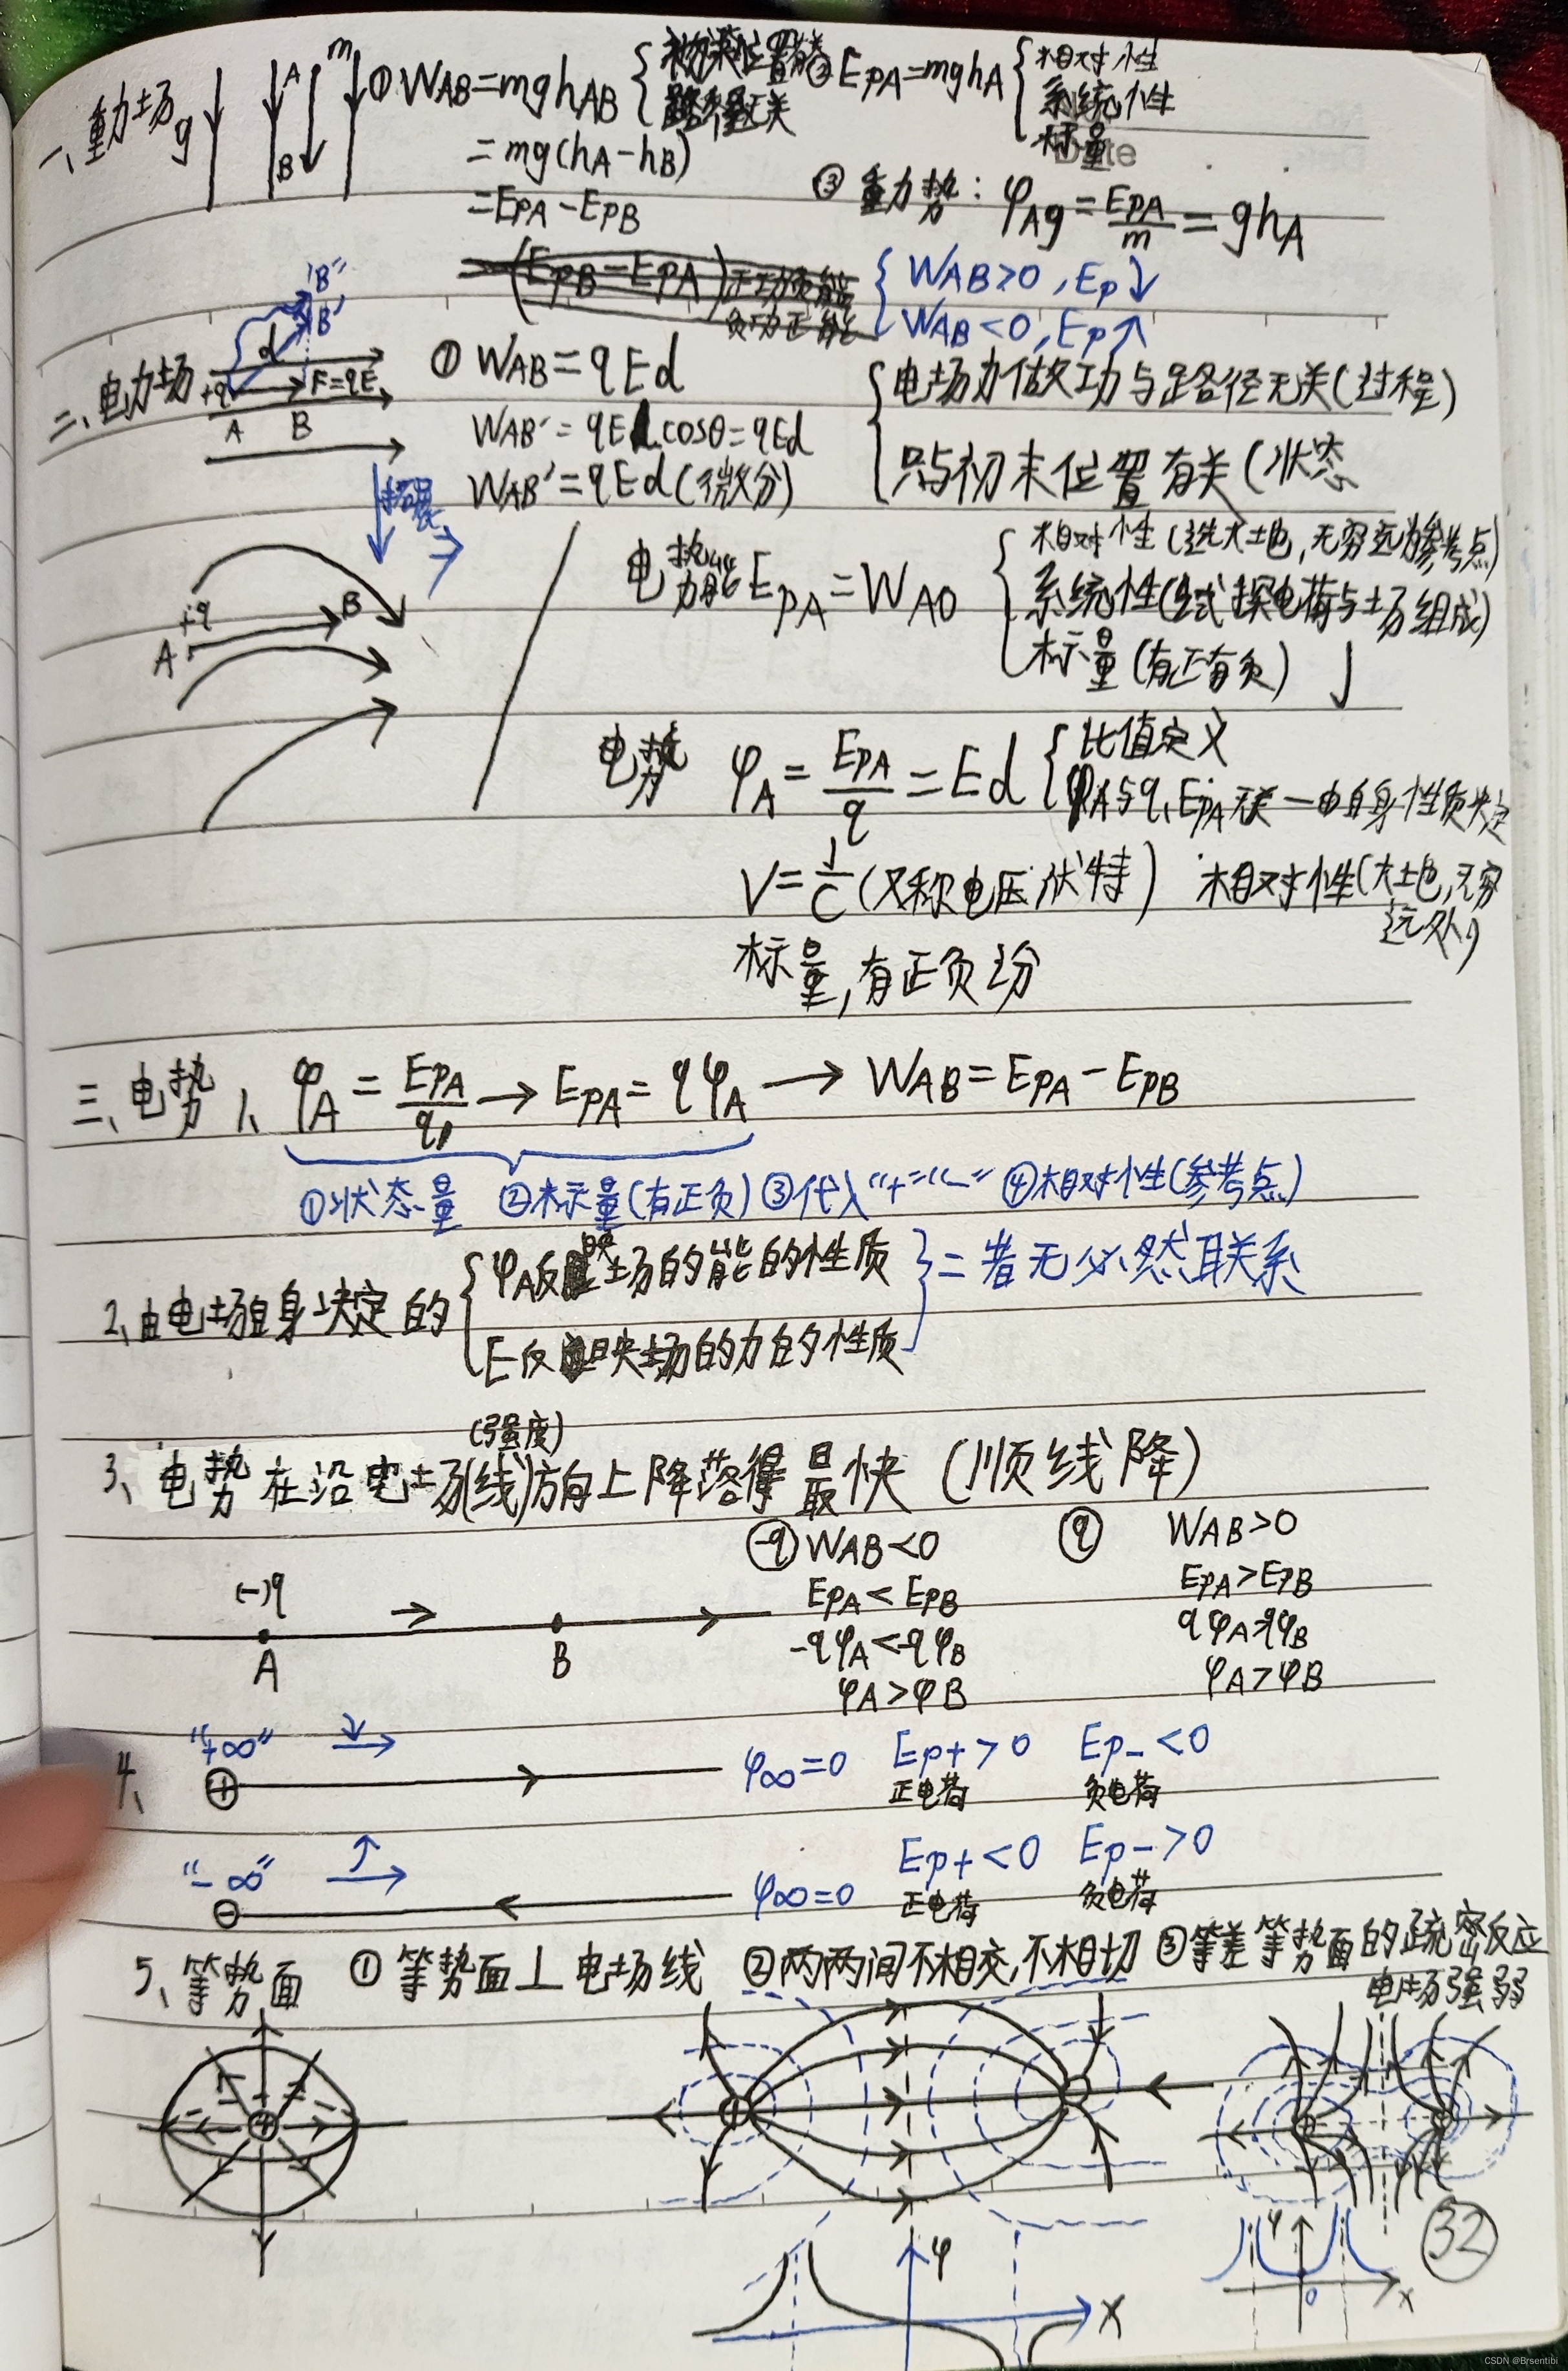 一、重力场 g A B m ① WAB=mghAB ② EPA=mghA { 相对性
系统性
标量
Date
=mg(hA-hB)
=EPA-EPB
③ 重力势: φAg=EPA/m=ghA
=(EPB-EPA) 正功负能
负功正能
{ WAB>0,EP↓
WAB<0,EP↑
B''
B'
d
二、电力场 +q F=qE A B
① WAB=qEd
WAB'=qEL cosθ=qEd
WAB'=qEd(微分)
{ 电场力做功与路径无关(过程)
只与初末位置有关(状态
拓展
+q A B
电势能 EPA=WA0 { 相对性(选大地,无穷远为参考点)
系统性(试探电荷与场组成)
标量(有正有负)
电势 φA=EPA/q=Ed { 比值定义
φA与q、EPA无关—由自身性质决定
V=J/C(又称电压伏特) 相对性(大地,无穷
远处)
标量,有正负分
三、电势 1、φA=EPA/q→EPA=qφA→WAB=EPA-EPB
①状态量 ②标量(有正负) ③代入“+”“-” ④相对性(参考点)
2、由电场自身决定的 { φA反映场的能的性质
E反映场的力的性质
} 二者无必然联系
(强度)
3、电势在沿电场(线)方向上降落得最快(顺线降)
(-)q A B
-q WAB<0
EPA<EPB
-qφA<-qφB
φA>φB
q WAB>0
EPA>EPB
qφA>qφB
φA>φB
4、“+∞” + φ∞=0 EP+>0 EP-<0
正电荷 负电荷
“-∞” - φ∞=0 EP+<0 EP->0
正电荷 负电荷
5、等势面 ① 等势面⊥电场线 ②两两间不相交,不相切 ③等差等势面的疏密反应
电场强弱
+
φ
x
φ
0
x
32
CSDN @Brsentibi